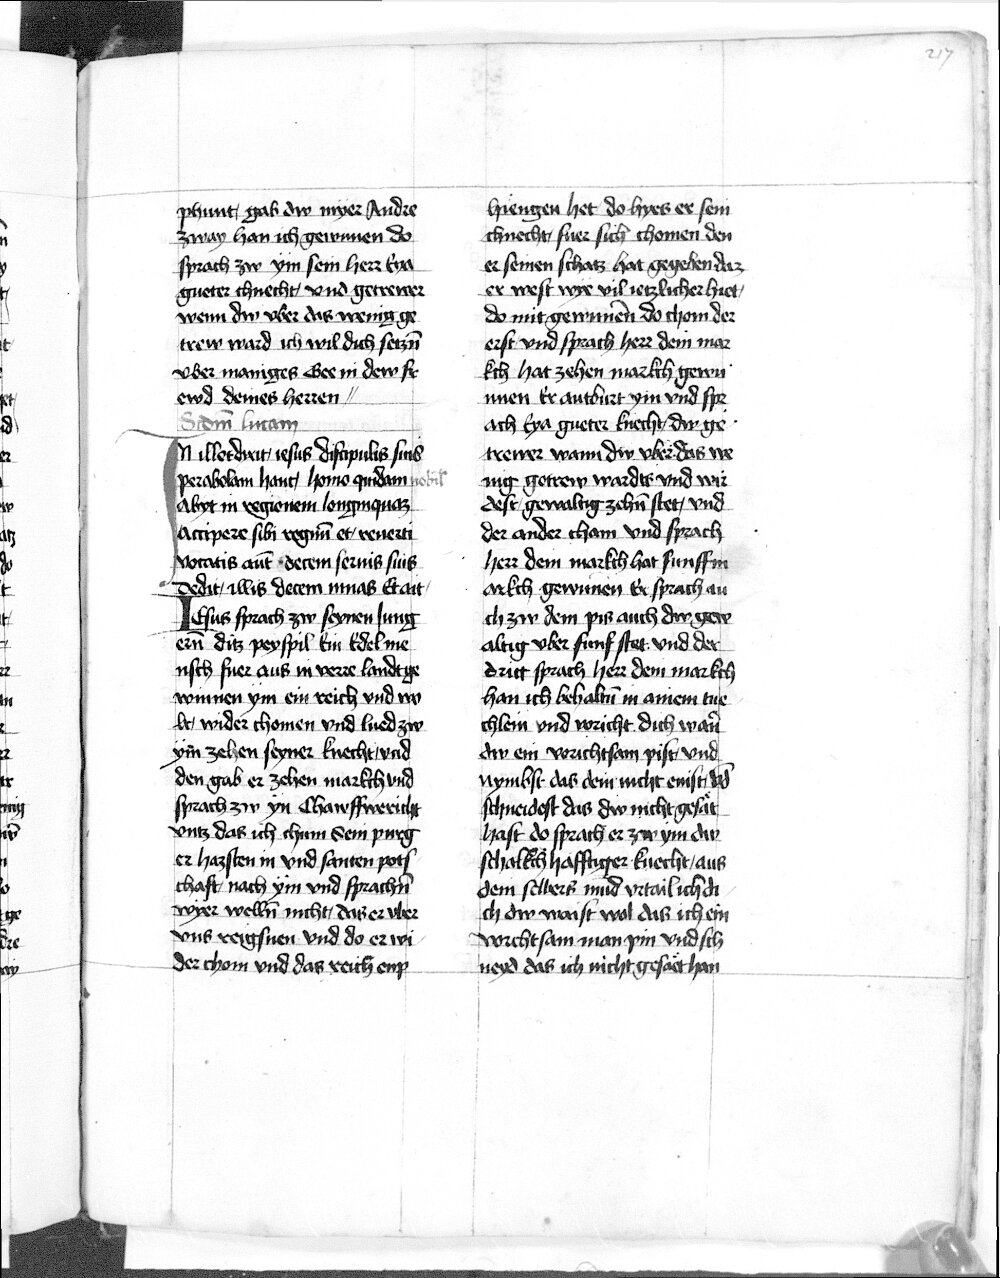 217
phunt / gab dw myer Andre
zway han ich gewunnen do
sprach zw ym sein herr Eya
gueter chnecht / vnd getrewer
wenn dw vber das wenig ge
trew ward ich wil dich seczn̄
vber maniges Gee in dew fr
ewd deines herren //
Scdm̄ lucam
IN illo t dixit iesus discipulis suis
perabolam hanc / homo quidam nobil
Abyt in regionem longinquaz
Accipere sibi regnū et reuerti
vocatis aūt decem seruis suis
Dedit illis decem mnas Et ait /
IEsus sprach zw seynen Jung
ern̄ ditz peyspil Ein Edel me
nsch fuer aus in verre landt ge
winnen ym ein reich vnd wo
lt / wider chomen vnd lued zw
ym̄ zehen seyner knecht / vnd
den gab er zehen markch vnd
sprach zw yn Chawffwericht
vntz das ich chum Sein purg
er hazsten in vnd santen pots
chaft / nach ym̄ vnd sprachn̄
wyer welln̄ nicht / das er vber
vns reigsnen vnd do er wi
der chom vnd das reich enp
hiengen het do hyes er sein
chnecht / fuer sich chomen den
er seinen schatz hat gegeben daz
er west wye vil ietzlicher hiet /
do mit gewunnen̄ do chom der
erst vnd sprach herr dein mar
kch hat zehen markch gewu
nnen Er antburt ym vnd spr
ach Eya gueter knecht / dw ge
trewer wann dw vber das we
nig getrew wardts vnd wir
dest / gewaltig zehn̄ stet / vnd
der ander cham vnd sprach
herr dein markch hat funff m
arkch gewunen Er sprach au
ch zw dem pis auch dw gew
altig vber funf stet vnd der
dritt sprach herr dein markch
han ich behaltn̄ in ainem tue
chlein vnd voricht dich wan̄
dw ein vorichtsam pist / vnd
nymbst das dein nicht enist / vnd
schneidest das dw nicht gesät
hast do sprach er zw ym dw
schalkch hafftiger knecht / aus
dem selbers mūd vrtail ich di
ch dw waist wol das ich ein
worchtsam man pin vnd sch
neyd das ich nicht gesäet han